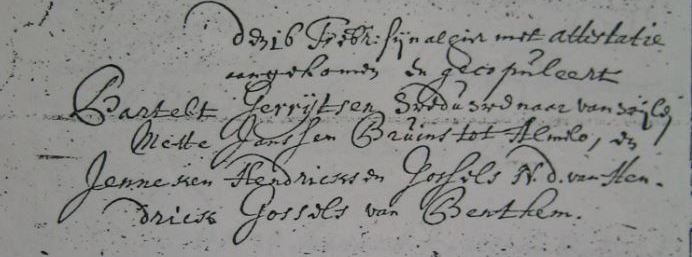 den 16 Febr: sijn alhier met attestatie
aengekomen en gecopuleert
Bartelt Gerrijtsen Weduwenaar van wijlen
Mette Janssen Bruins tot Almelo, en
Jenneken Hendricksen Gossels N. d. van Hen-
drick Gossels van Benthem.